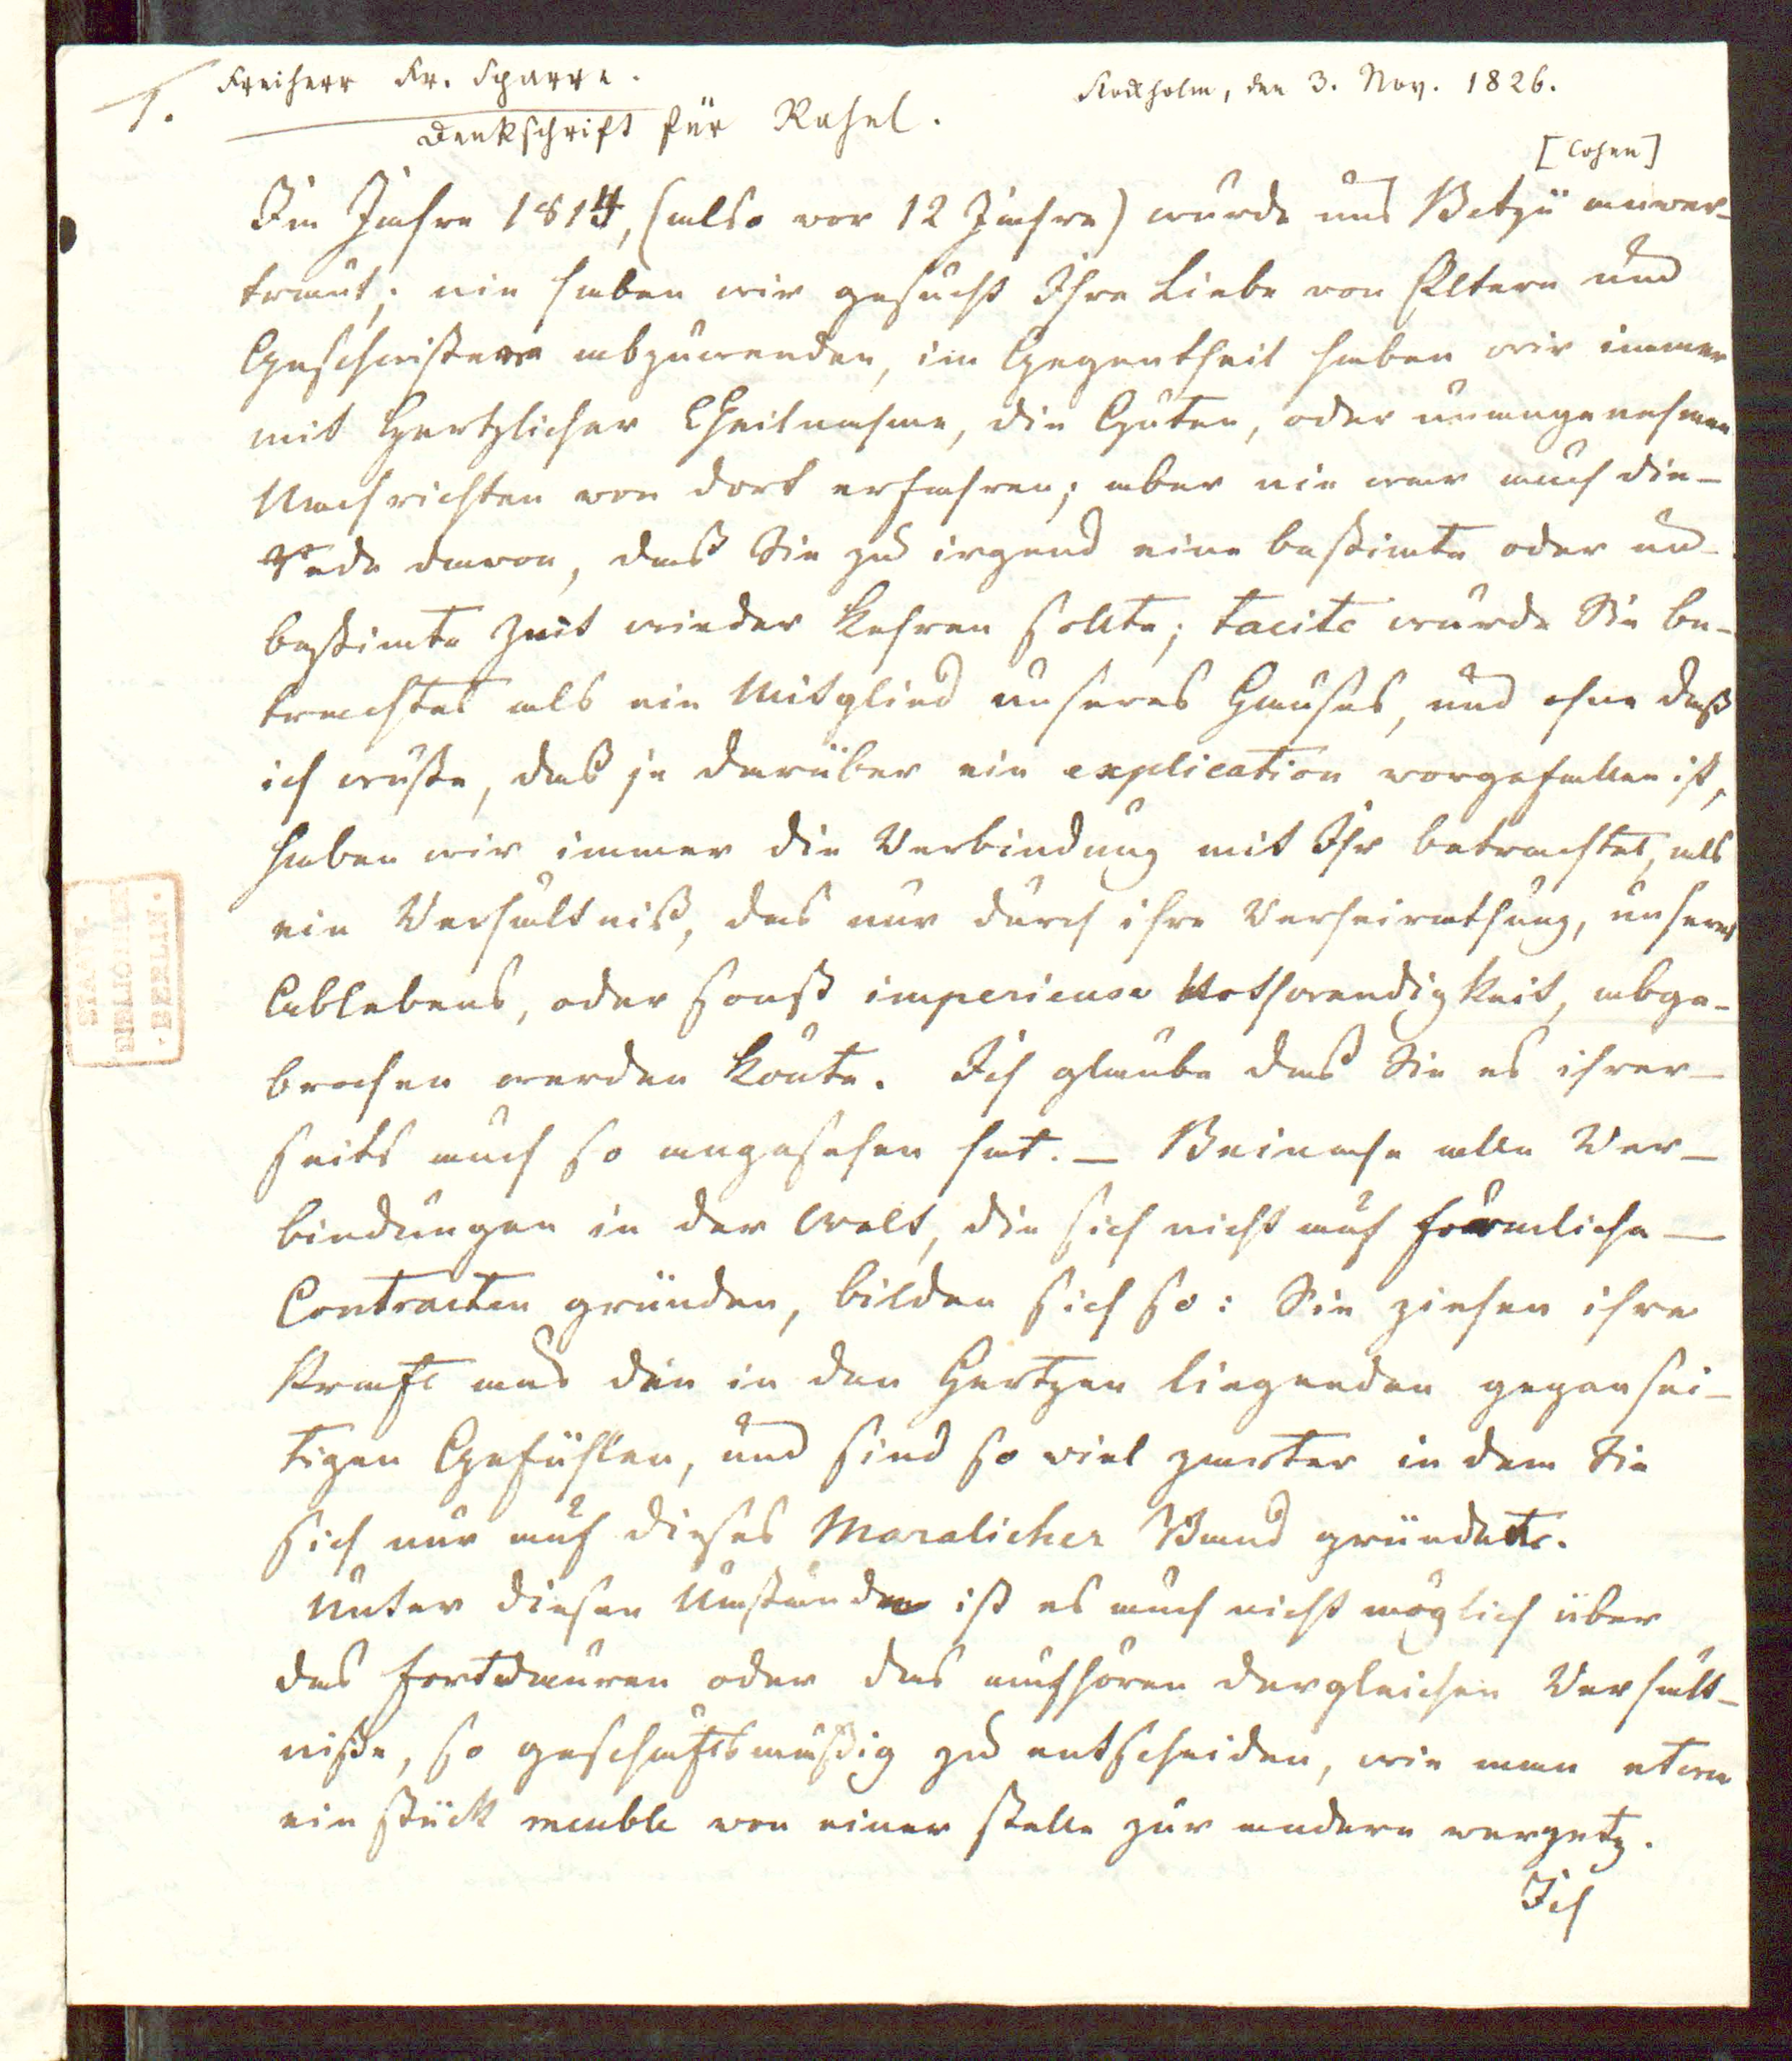 1. Freiherr Fr. Sparre.
Stockholm, den 3. Nov. 1826.
Denkschrift für Rahel.
[Cohen]
Im Jahre 1814, (also vor 12 Jahre) wurde uns Betzü anver-
traut; nie haben wir gesucht Ihre Liebe von Eltern und
Geschwistern abzuwenden, im Gegentheil haben wir immer
mit Hertzlicher Theilnahme, die Guten, oder unangenehmen
Nachrichten von dort erfahren; aber nie war auch die-
Rede davon, daß Sie zu irgend eine bestimte oder un-
bestimte Zeit wieder kehren sollte; tacite wurde Sie be-
trachtet als ein Mitglied unseres Hauses, und ohne daß
ich wüste, das je darüber ein explication vorgefallen ist,
haben wir immer die Verbindung mit Ihr betrachtet, als
ein Verhältniß, das nur durch ihre Verheirathung, unseres
Ablebens, oder sonst imperieuse Nothwendigkeit, abge-
brochen werden könte. Ich glaube das Sie es ihrer-
seits auch so angesehen hat. – Beinahe alle Ver-
bindungen in der Welt, die sich nicht auf förmliche –
Contracten gründen, bilden sich so: Sie ziehen ihre
Kraft aus den in den Hertzen liegenden gegensei-
tigen Gefühlen, und sind so viel zarter in dem Sie
sich nur auf dieses Moralicher Band gründete.
Unter diesen Umständen ist es auch nicht möglich über
das fortdauren oder das aufhören dergleichen Verhält-
niße, so geschäftsmäßig zu entscheiden, wie man etwa
ein stück meuble von einer stelle zur andern versetz.
Ich
STAATS-
BIBLIOTHEK
· BERLIN ·